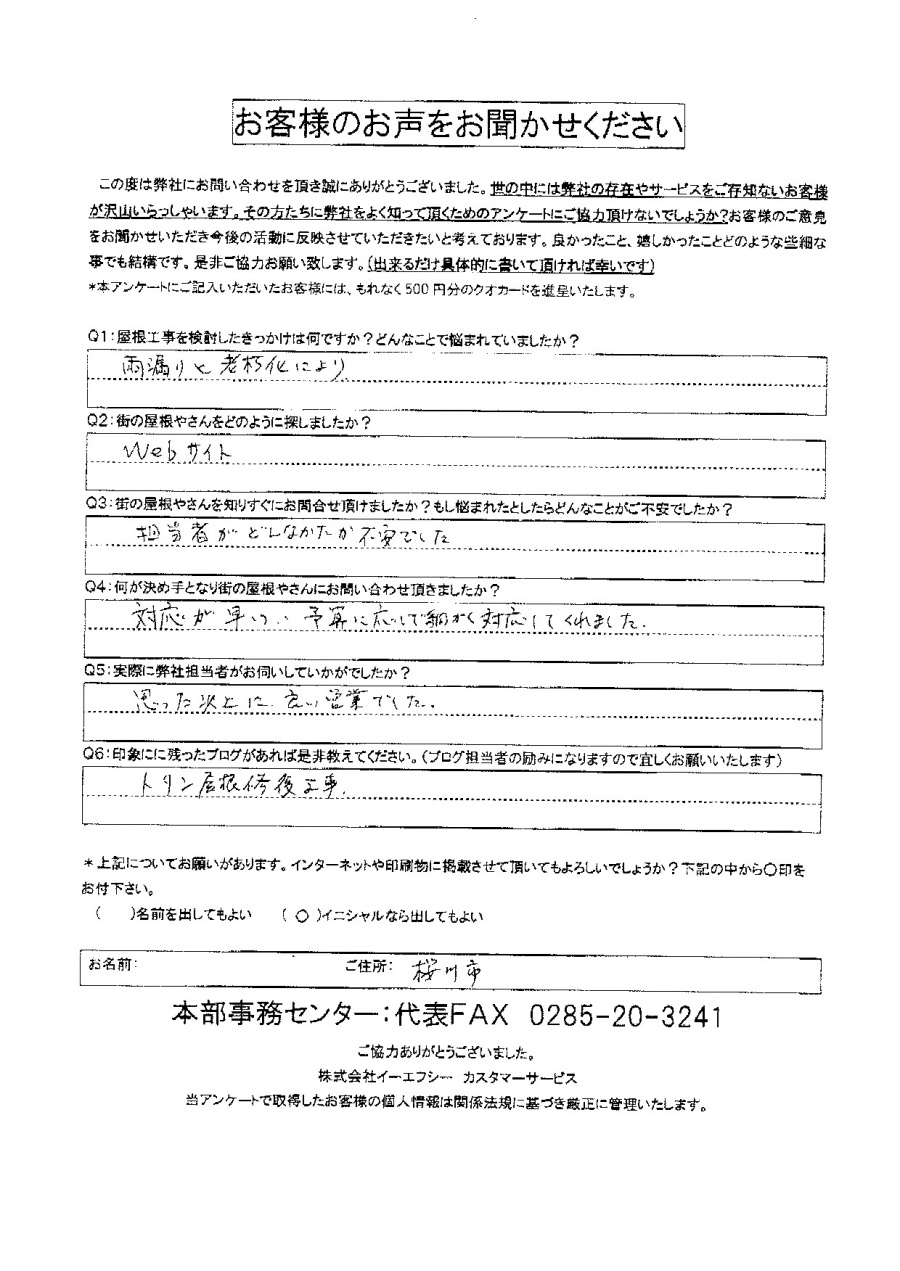 お客様のお声をお聞かせください
この度は弊社にお問い合わせを頂き誠にありがとうございました。世の中には弊社の存在やサービスをご存知ないお客様
が沢山いらっしゃいます。その方たちに弊社をよく知って頂くためのアンケートにご協力頂けないでしょうか?お客様のご意見
をお聞かせいただき今後の活動に反映させていただきたいと考えております。良かったこと、嬉しかったことどのような些細な
事でも結構です。是非ご協力お願い致します。(出来るだけ具体的に書いて頂ければ幸いです)
*本アンケートにご記入いただいたお客様には、もれなく500円分のクオカードを進呈いたします。
Q1:屋根工事を検討したきっかけは何ですか?どんなことで悩まれていましたか?
雨漏りと老朽化により
Q2:街の屋根やさんをどのように探しましたか?
Webサイト
Q3:街の屋根やさんを知りすぐにお問合せ頂けましたか?もし悩まれたとしたらどんなことがご不安でしたか?
担当者がどんなかたか不安でした
Q4:何が決め手となり街の屋根やさんにお問い合わせ頂きましたか?
対応が早い 予算に応じて細かく対応してくれました.
Q5:実際に弊社担当者がお伺いしていかがでしたか?
思った以上に良い営業でした.
Q6:印象にに残ったブログがあれば是非教えてください。(ブログ担当者の励みになりますので宜しくお願いいたします)
屋根修復工事.
*上記についてお願いがあります。インターネットや印刷物に掲載させて頂いてもよろしいでしょうか?下記の中から〇印を
お付下さい。
( )名前を出してもよい (〇)イニシャルなら出してもよい
お名前: ご住所: 桜川市
本部事務センター:代表FAX 0285-20-3241
ご協力ありがとうございました。
株式会社イーエフシー カスタマーサービス
当アンケートで取得したお客様の個人情報は関係法規に基づき厳正に管理いたします。